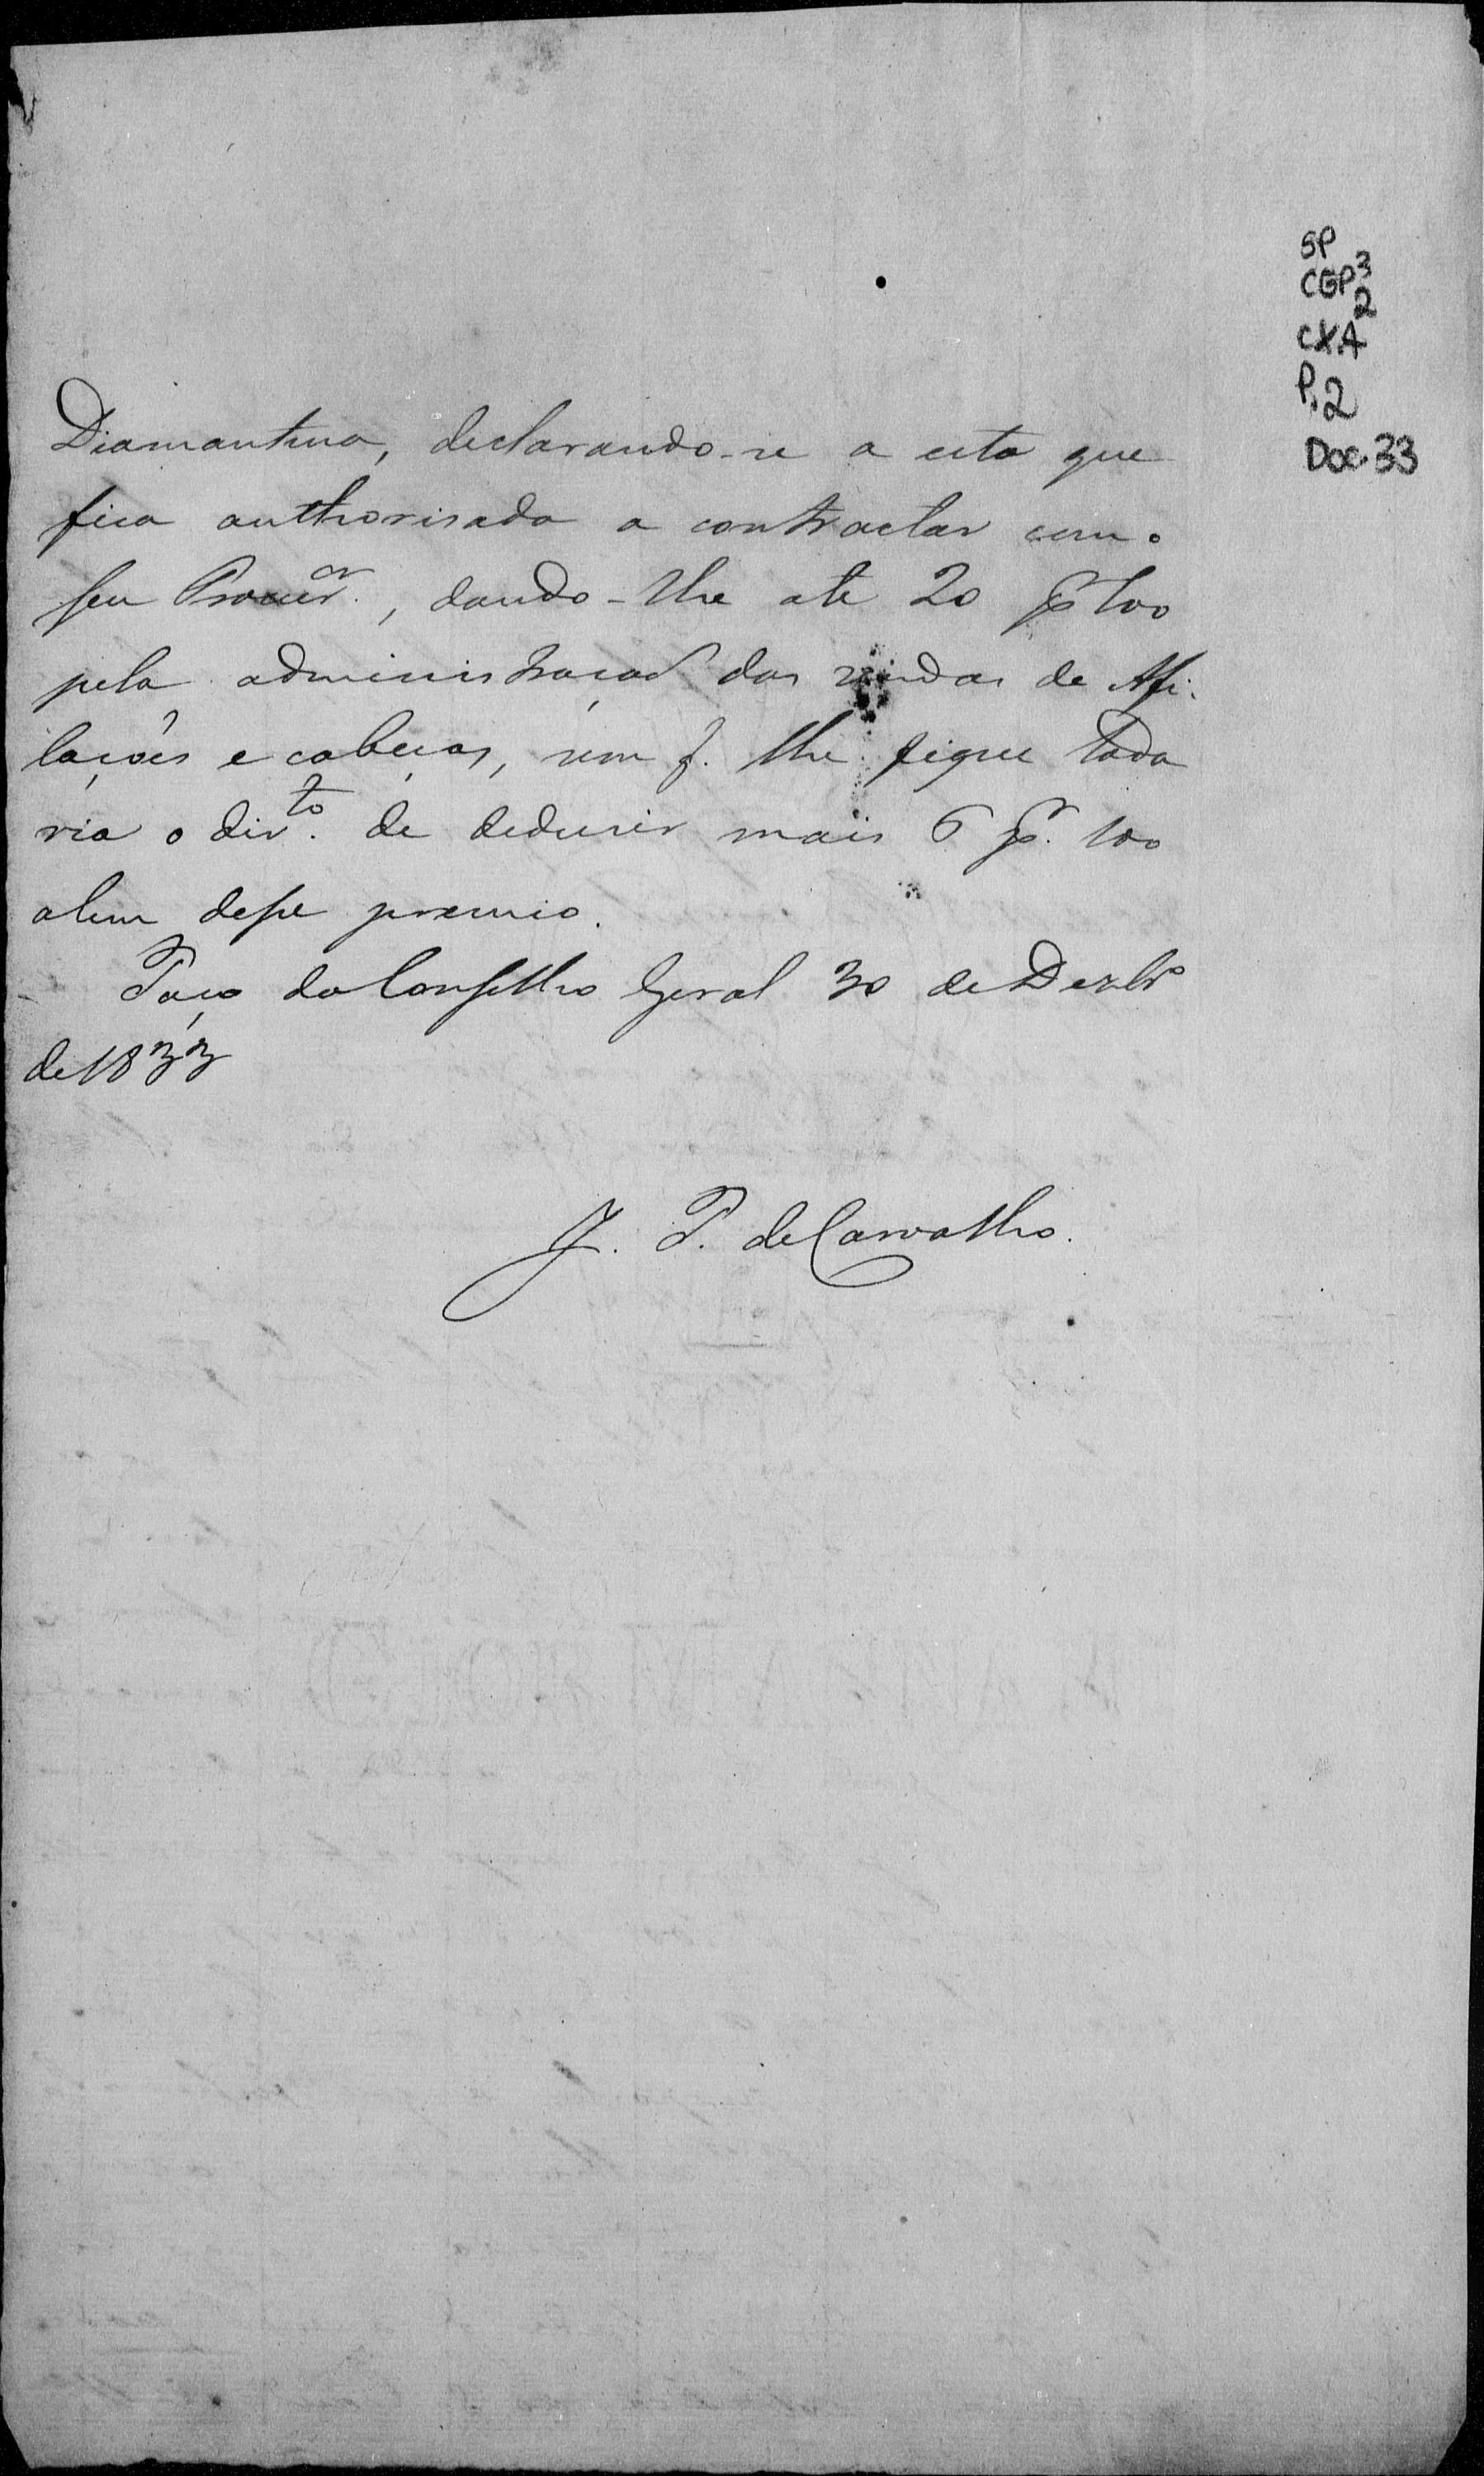 SP
CGP 3
2
CX.4
P.2
Doc. 33
Diamantina, declarando-se a esta que
fica authorisada a contractar com o
seu Procur.or, dando-lhe ate 20 pr 100
pela administração das rendas de Afi-
lações e cabeças, sem q. lhe fique toda
via o dir.to de dedusir mais 6 pr. 100
alem desse premio.
Paço do Conselho Geral 30 de Dezbro
de 1833
J. P. de Carvalho.